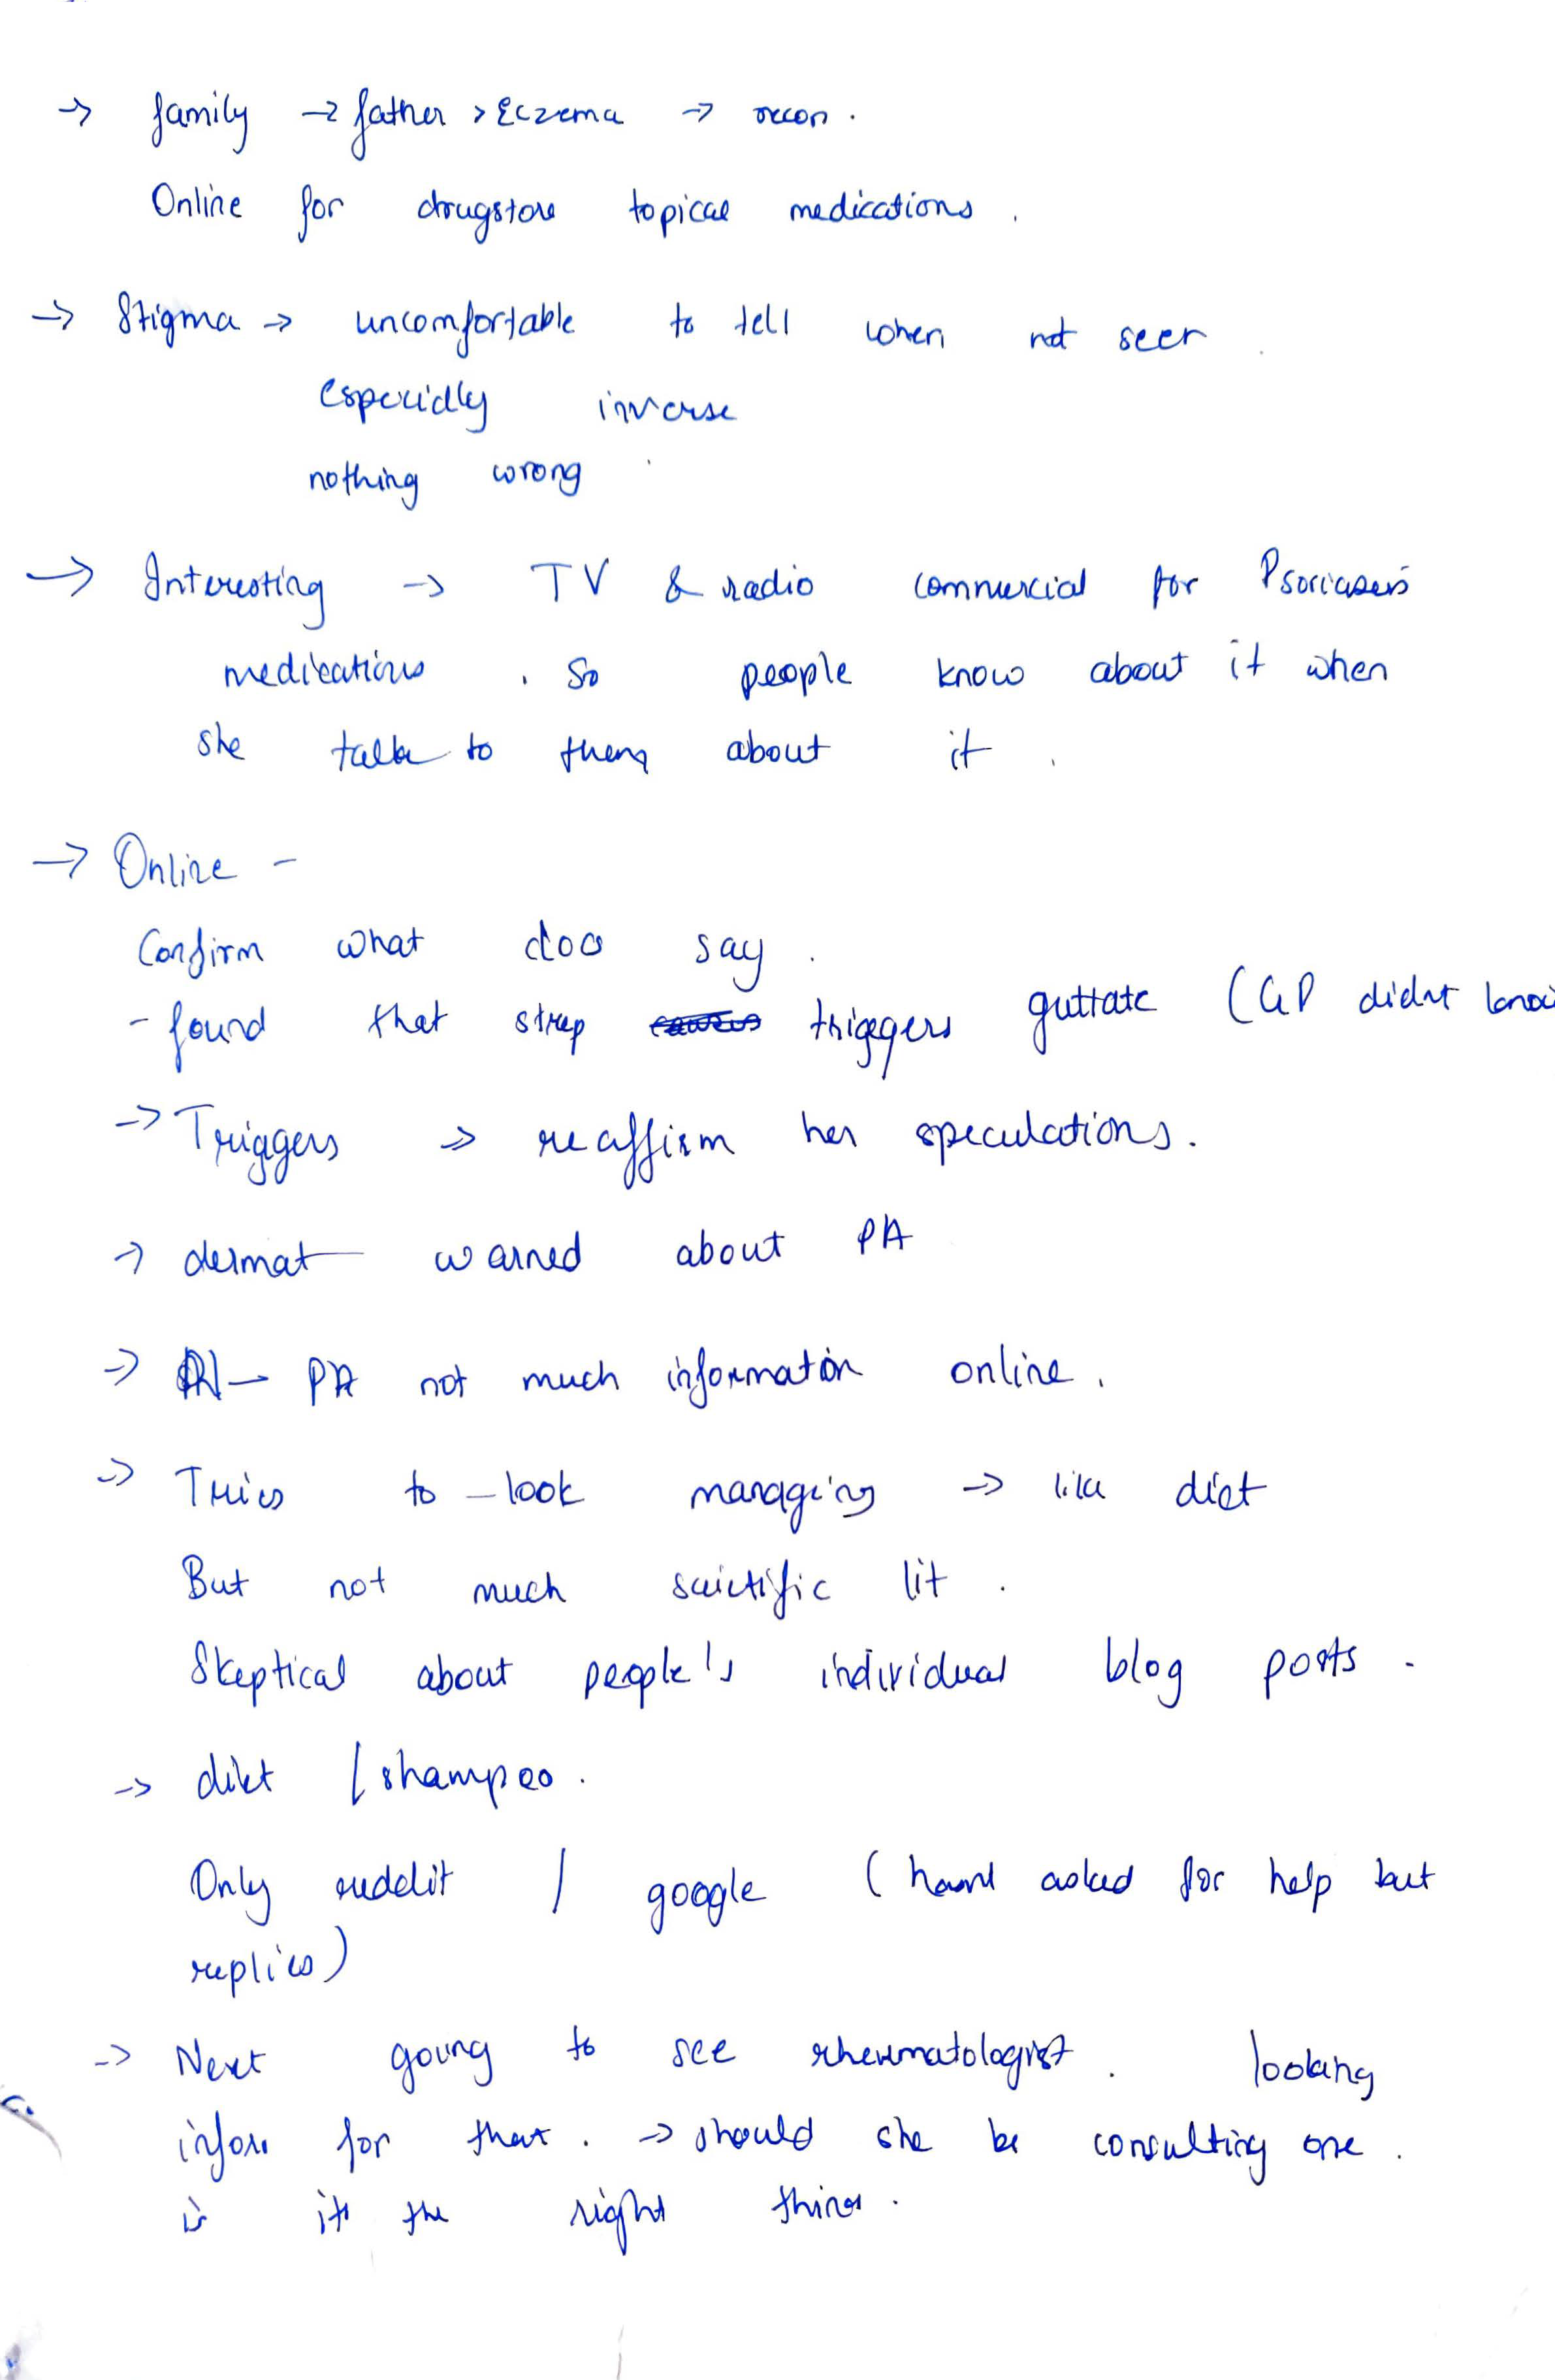 → family → father > Eczema → recon.
Online for drugstore topical medications.
→ Stigma → uncomfortable to tell when not seen.
especially inverse
nothing wrong
→ Interesting → TV & radio commercial for Psoriasis
medications. So people know about it when
she talk to them about it.
→ Online -
Confirm what docs say.
- found that strep triggers guttate (GP didnt know
→ Triggers → reaffirm her speculations.
→ dermat warned about PA
→ PA not much information online.
→ Tries to look managing → like diet
But not much scietific lit.
Skeptical about people's individual blog posts.
→ diet / shampoo.
Only reddit / google (hasnt asked for help but
replies)
→ Next going to see rheumatologist. looking
infor for that. → should she be consulting one.
is it the right thing.